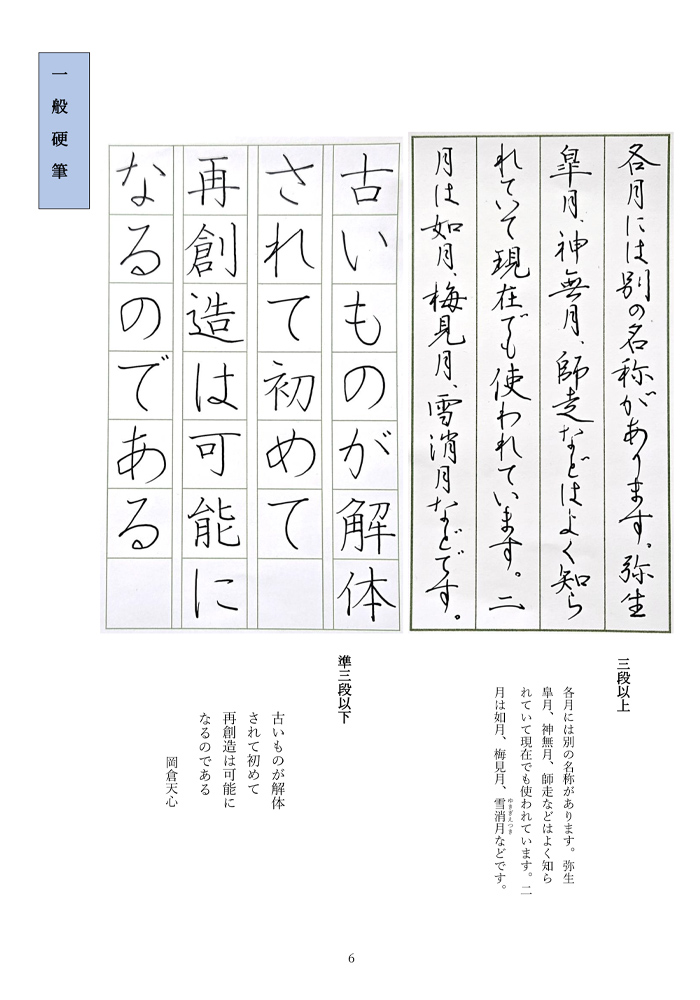 一般硬筆
各月には別の名称があります。弥生
皐月、神無月、師走などはよく知ら
れていて現在でも使われています。二
月は如月、梅見月、雪消月などです。
古いものが解体
されて初めて
再創造は可能に
なるのである
三段以上
各月には別の名称があります。弥生
皐月、神無月、師走などはよく知ら
れていて現在でも使われています。二
月は如月、梅見月、雪消月などです。
ゆきぎえつき
準三段以下
古いものが解体
されて初めて
再創造は可能に
なるのである
岡倉天心
6